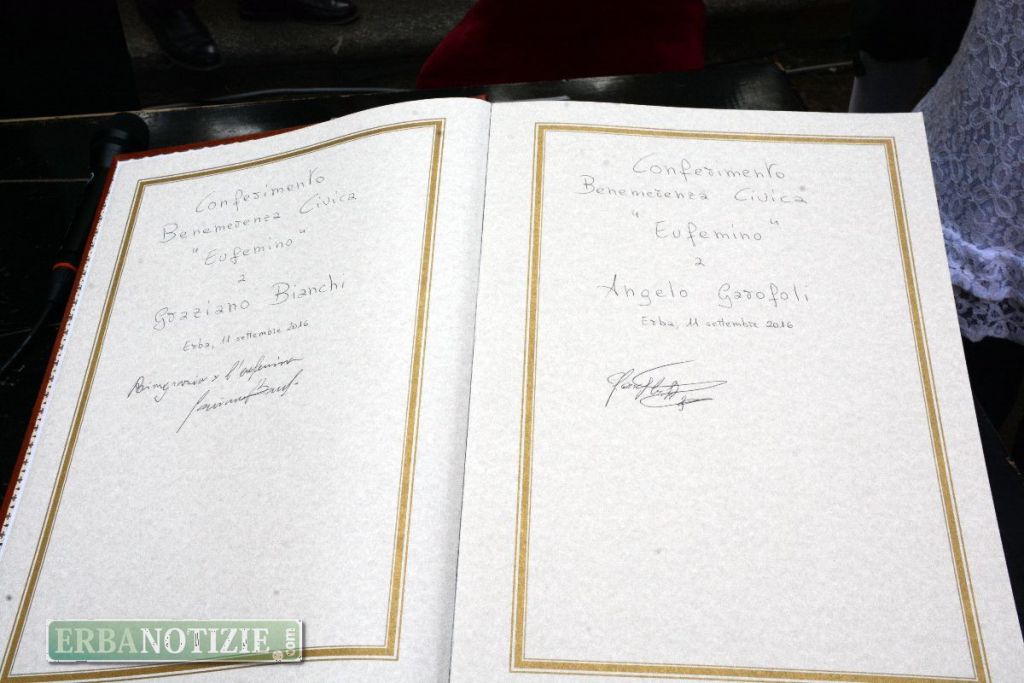 Conferimento
Benemerenza Civica
"Eufemino"
a
Graziano Bianchi
Erba, 11 settembre 2016
Conferimento
Benemerenza Civica
"Eufemino"
a
Angelo Garofoli
Erba, 11 settembre 2016
ERBANOTIZIE.com